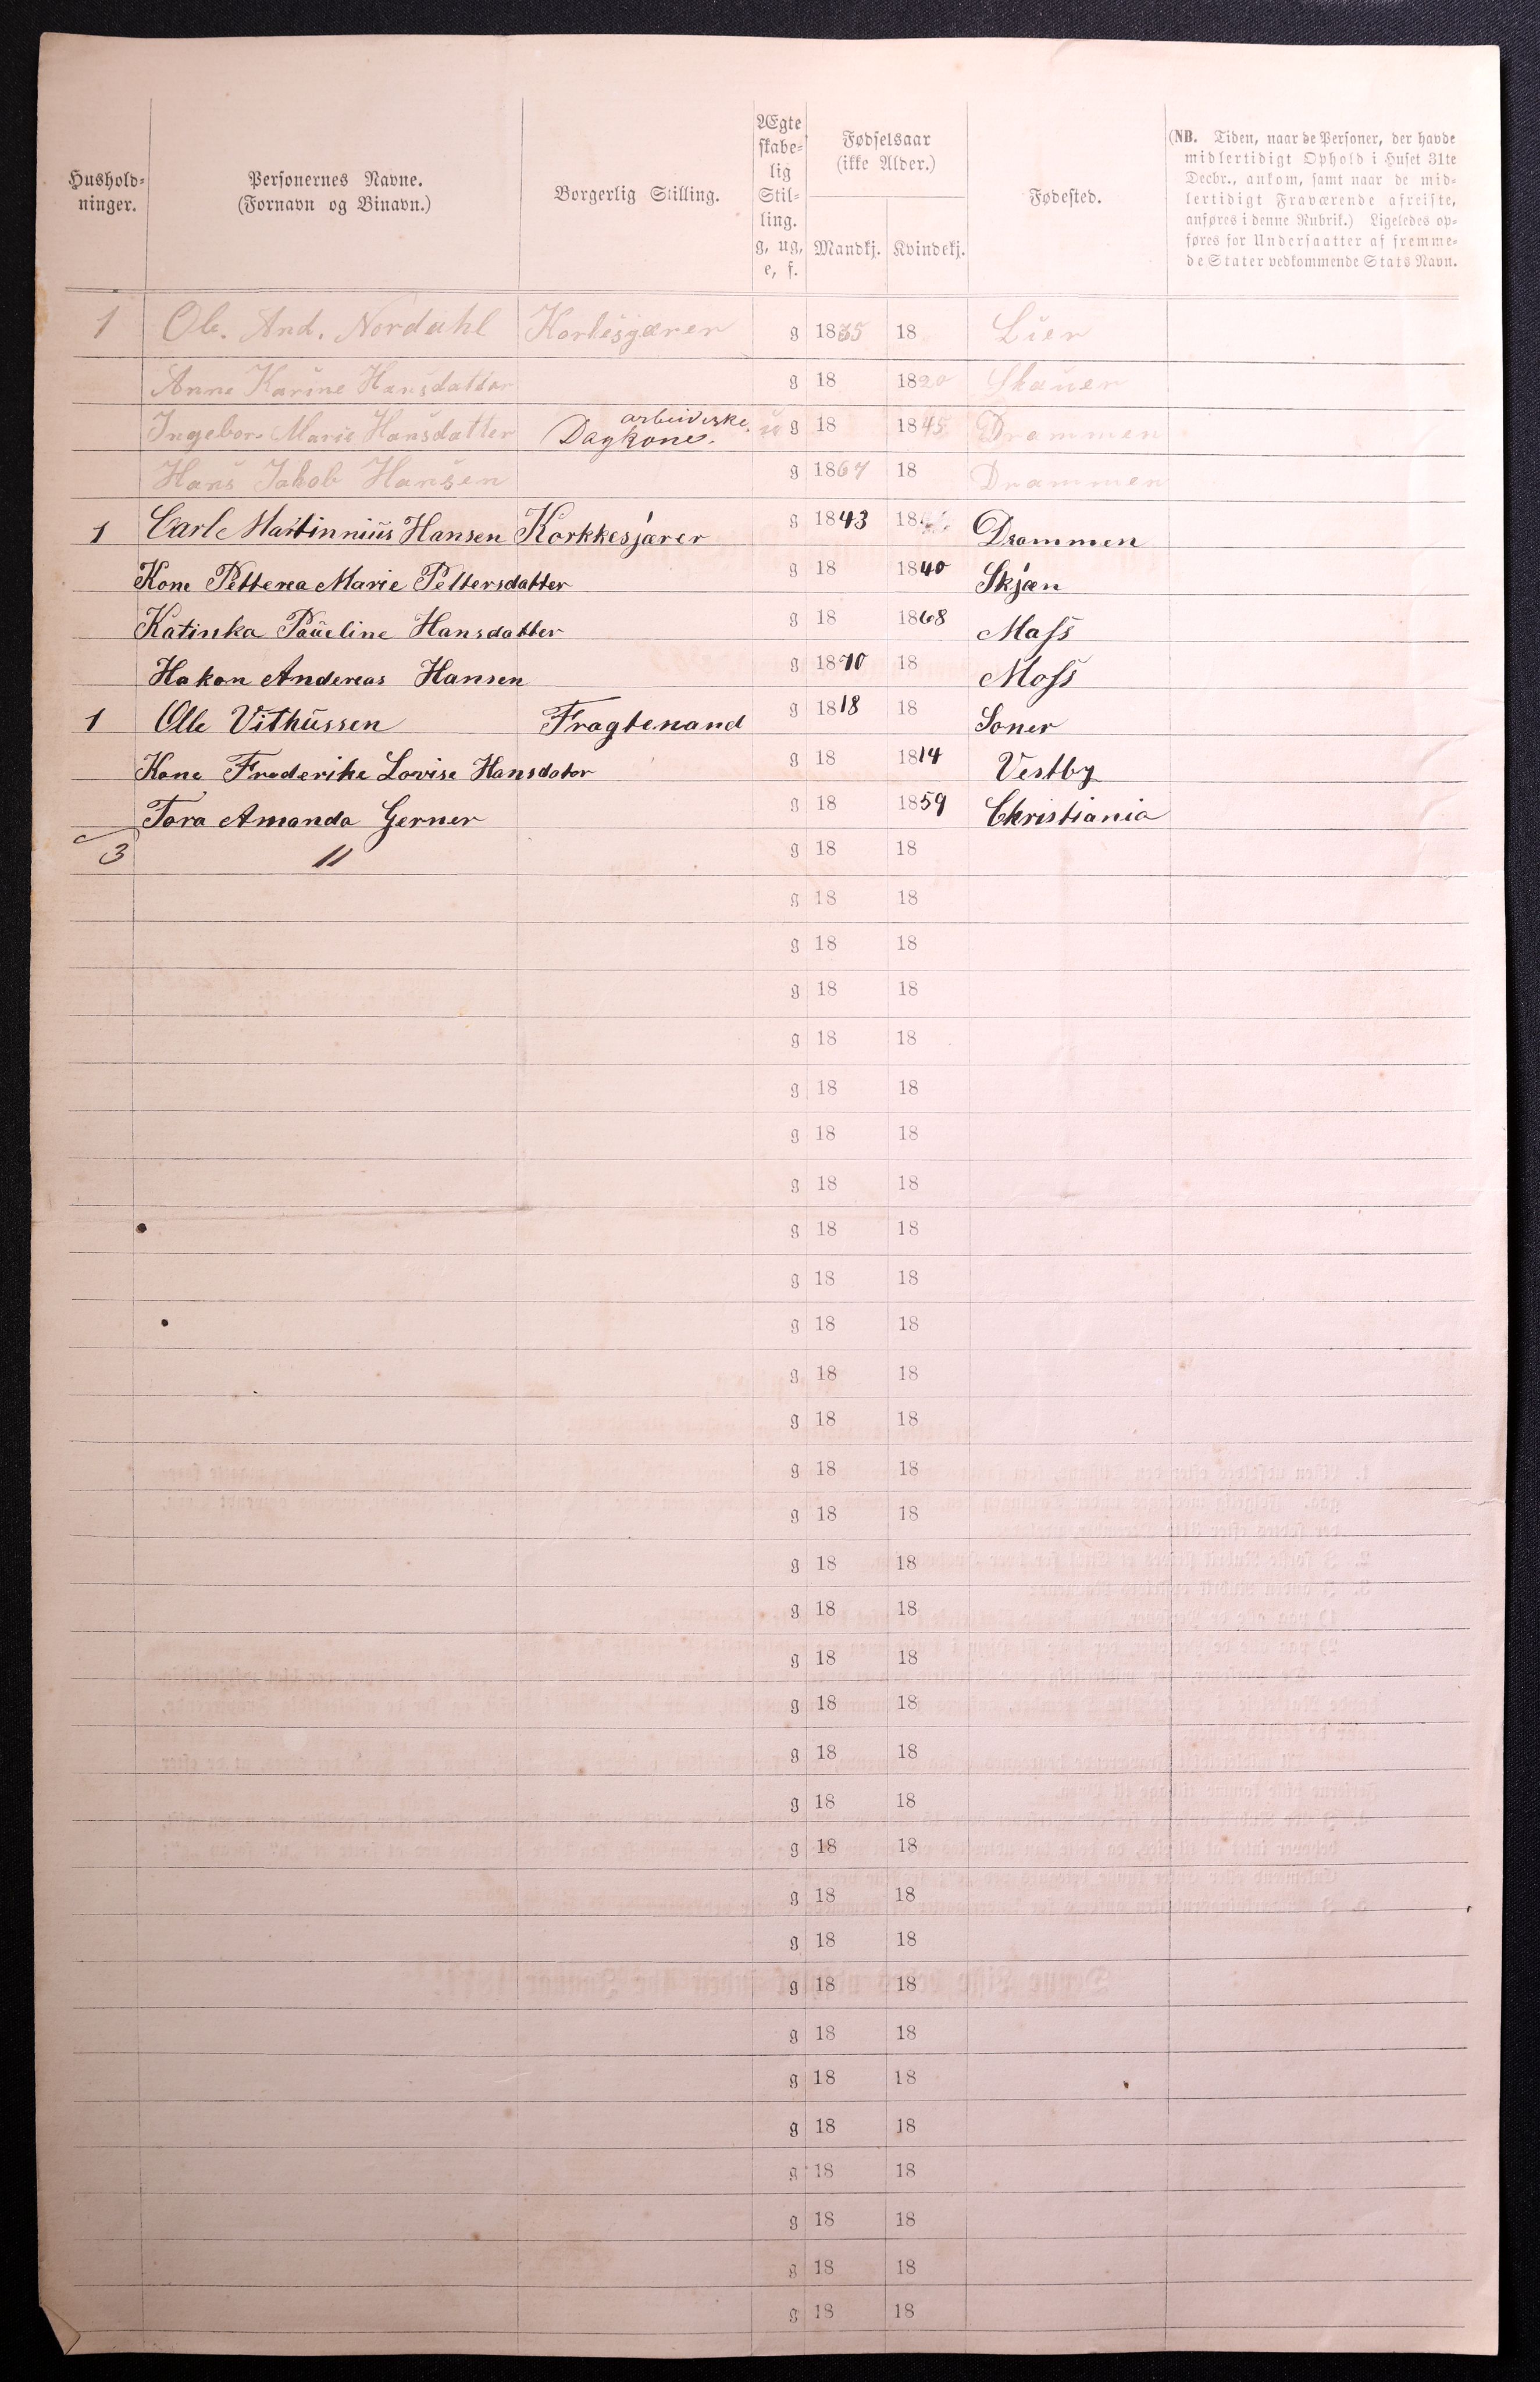 Hushold-
ninger.
Personernes Navne.
(Fornavn og Binavn.)
Borgerlig Stilling.
Ægte
skabe-
lig
Stil-
ling.
g, ug,
e, f.
Fødselsaar
(ikke Alder.)
Mandkj. Kvindekj.
Fødested.
(NB. Tiden, naar de Personer, der havde
midlertidigt Ophold i Huset 31te
Decbr., ankom, samt naar de mid-
lertidigt Fraværende afreiste,
anføres i denne Rubrik.) Ligeledes op-
føres for Undersaatter af fremme-
de Stater vedkommende Stats Navn.
1 Ole. And. Nordahl Korkesgærer g 1835 18 Lier
Anne Karine Hansdatter g 18 1820 Skauer
Ingebor Marie Hansdatter arbeiderske. Dagkone. u g 18 1845 Drammen
Hans Jakob Hansen g 1867 18 Drammen
1 Carl Martinnius Hansen Korkkesjærer g 1843 18 Drammen
Kone Petterea Marie Pettersdatter g 18 1840 Skjæn
Katinka Paueline Hansdatter g 18 1868 Moss
Hakon Andereas Hansen g 1870 18 Moss
1 Olle Vithussen Fragtemand g 1818 18 Soner
Kone Frederike Lovise Hansdator g 18 1814 Vestby
Tora Amanda Gerner g 18 1859 Christiania
3 11 g 18 18
g 18 18
g 18 18
g 18 18
g 18 18
g 18 18
g 18 18
g 18 18
g 18 18
g 18 18
g 18 18
g 18 18
g 18 18
g 18 18
g 18 18
g 18 18
g 18 18
g 18 18
g 18 18
g 18 18
g 18 18
g 18 18
g 18 18
g 18 18
g 18 18
g 18 18
g 18 18
g 18 18
g 18 18
g 18 18
g 18 18
g 18 18